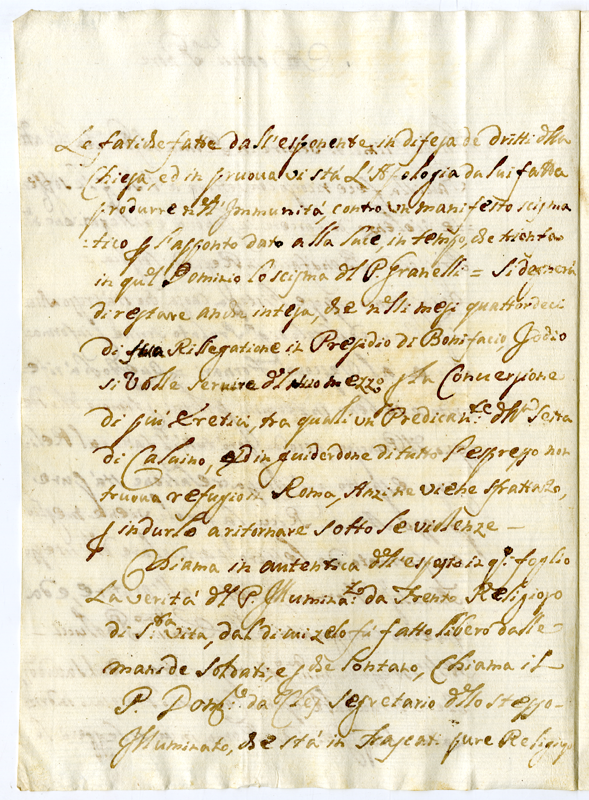 Le fatiche fatte dall'esponente in difesa de dritti della
Chiesa, ed in pruova vi stà L'Apologia da lui fatta
produrre nell'Immunità, contro un manifesto scisma
=tico p l'apponto dato alla luce in tempo che
in quel Dominio lo scisma del P. Granelli =
di restare anche intesa, che nelli mesi quattordeci
di Rillegatione in Presidio di Bonifacio Iddio
si volle servire del mezzo p la Conversione
di più Eretici, tra quali un Predican.te della Setta
di Calvino, ed in guiderdone di tutto l'espresso non
truova refugio in Roma, Anzi ne viene sfrattato,
p indurlo a ritornare sotto le violenze –
Chiama in autentica dell'esposto in q.o foglio
La verità del P. Illumina.to da Trento Religioso
di S.ta vita, dal di cui zelo fù fatto libero dalle
mani de soldati, e p che lontano, Chiama il
P. Dom.o da segretario dello stesso
Illuminato, che stà in Frascati pure Religioso